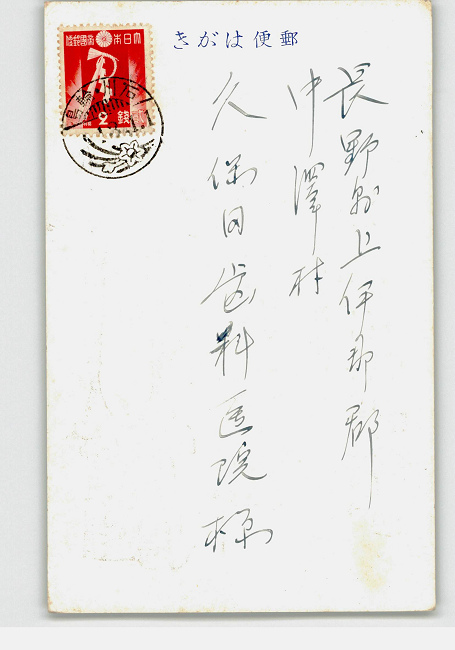 郵便はがき
大日本帝國郵便
2 錢
長野縣上伊那郡
中澤村
久保田歯科医院様